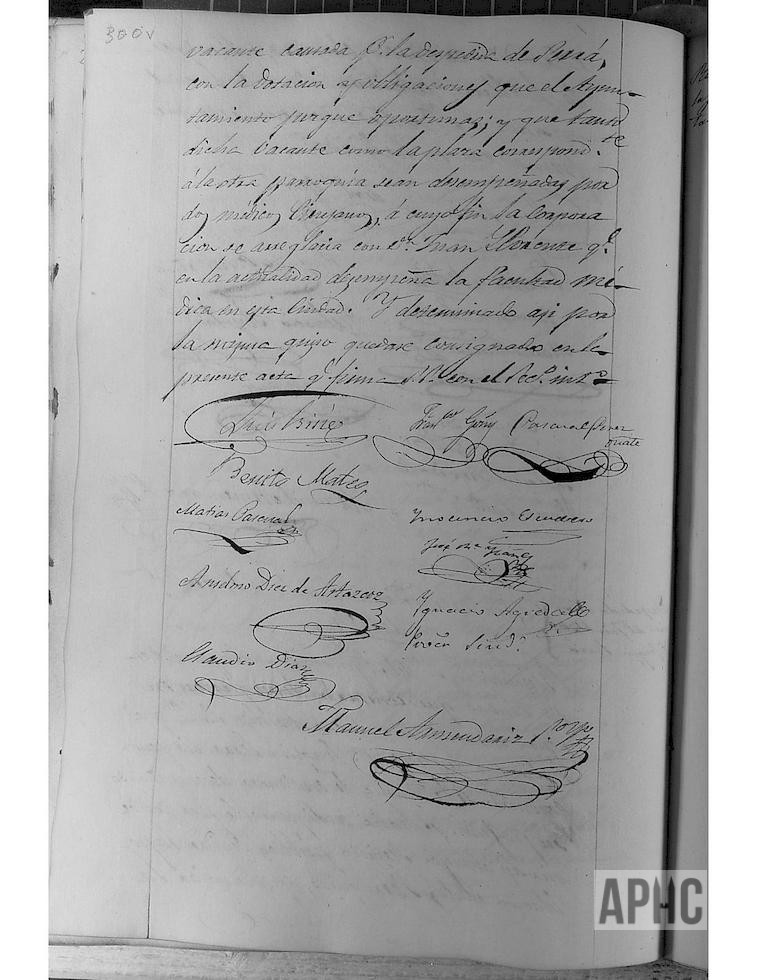 300v
vacante causada p.r la despedida de Perrá,
con la dotacion y obligaciones que el Ayun-
tamiento juzgue oportunas; y que tanto
dicha vacante como la plaza correspond.te
á la otra parroquia sean desempeñadas por
dos médicos Cirujanos, á cuyo fin la Corpora
cion se arreglaria con D.n Juan Llorente q.e
en la actualidad desempeña la facultad mé-
dica en esta Ciudad. Y determinado asi por
la misma quiso quedase consignado en la
presente acta q.e firma S.S. con el Sec.o int.o
Luis
Fran.co Goñi Pascual Perez
oñate
Benito Mateo
Matias Pascual
Inocencio Escudero
José M.a
Anselmo Diez de Artazcoz
Ignacio Agredo
Procu. Sind.o
Claudio Diaz
Manuel Armendariz
APHC